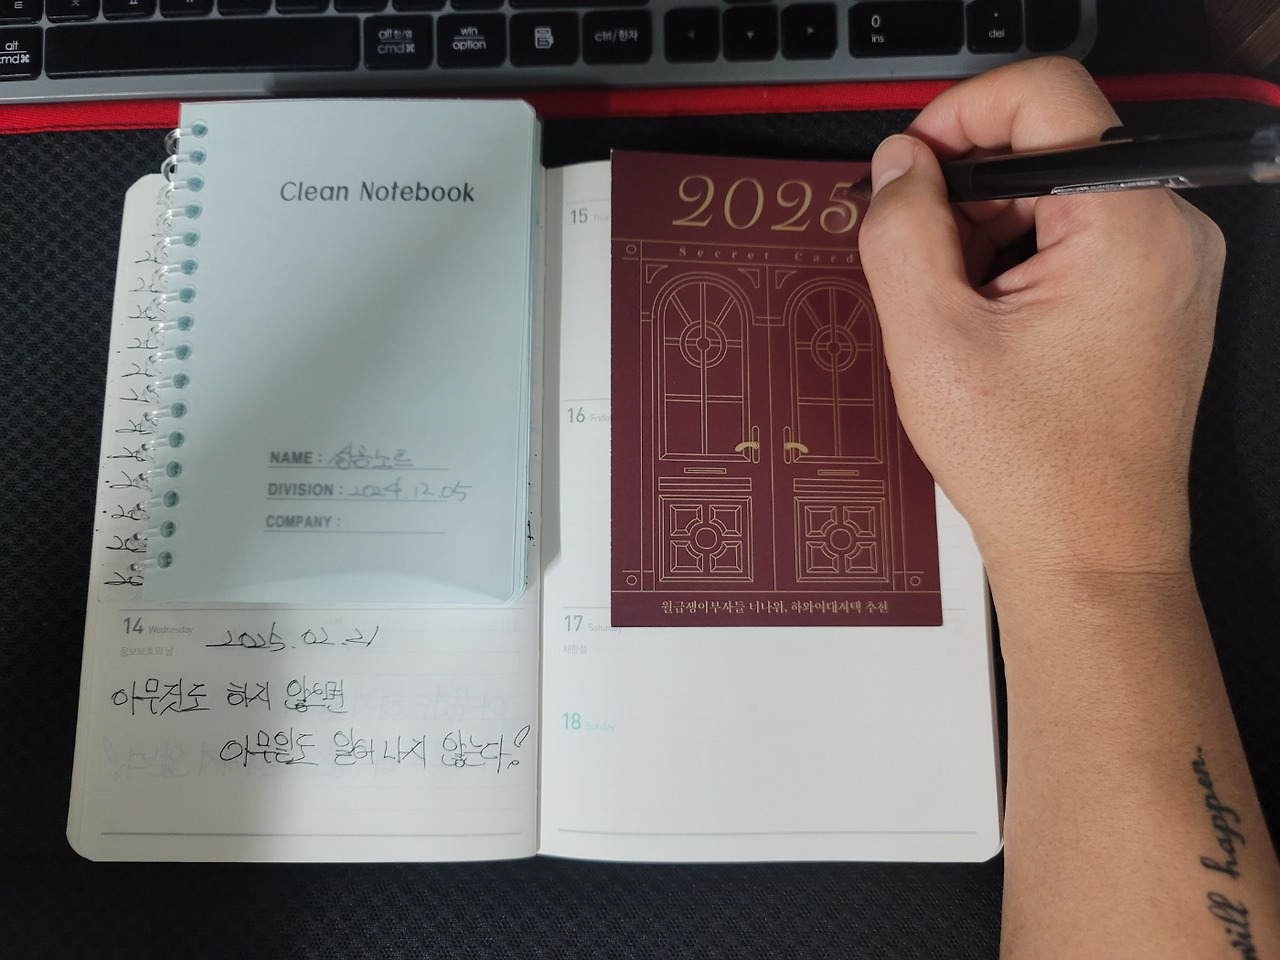 alt
cmd⌘
alt 한/영
cmd⌘
win
option
ctrl/한자
0
ins
.
del
Clean Notebook
NAME : 성공노트
DIVISION : 2024 12.05
COMPANY :
14 Wednesday 2025.02.21
정보보호의 날
아무것도 하지 않으면
아무일도 일어나지 않는다!
15 Thur
16 Friday
17 Saturday
제헌절
18 Sunday
2025
Secret Card
월급쟁이부자들 너나위, 하와이대저택 추천
will happen..